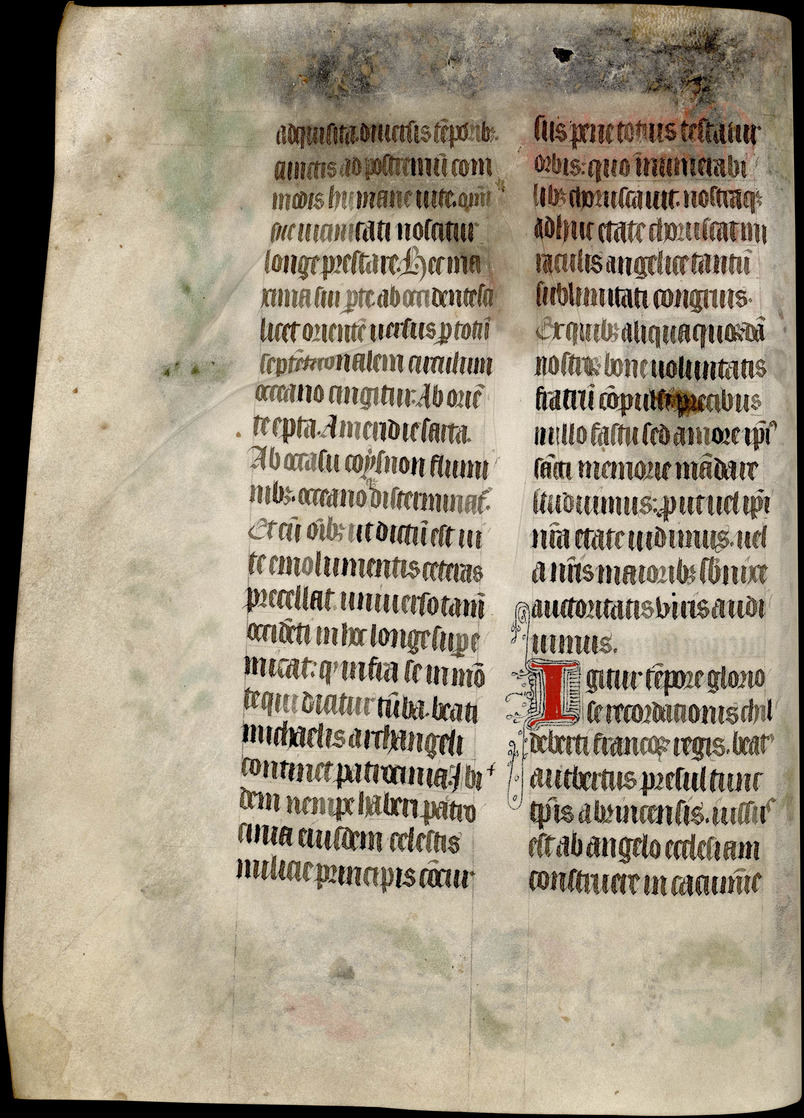 adquisita. diuersis tēporib₉.
cunctis ad postremū com
modis humane uite. opīn
sue uicinitati noscitur
longe prestare. Hec ma
xima sui p̲te ab occidente si
licet oriente uersus p̲ totū
septētrionalem circulum
occeano cingitur. Ab oriē
te epta. A meridie sarta.
Ab occasu coysnon flumi
nib₉. occeano disterminat᷑.
Et cū oīb₉ ut dictū est ui
te emolumentis ceteras
precellat. uniuerso tam̄
occidēti in hoc longe supe
micat: q᷑ infra se in mō
te qui dicitur tūba. beati
michaelis archangeli
continet patrocinia. Ibi
dem nempe haberi patro
cinia eiusdem celestis
milicie principis cōcur
sus pene totius testatur
orbis: quo īnumerabi
lib₉ choruscauit. nostraq₉
adhuc etate choruscat mi
raculis angelice tantū
sublimitati congruis.
Ex quib₉ aliqua quosdā
nostris bone uoluntatis
fratrū cōpulsi precibus
nullo fastu sed amore ip̄i᷒
sācti memorie mādare
studuimus: prout uel ip̄i
nr̄a etate uidimus. uel
a nr̄is maiorib₉ sb̄nixe
auctoritatis uiris audi
uimus.
Igitur tēpore glorio
se recordationis chil
deberti francoꝝ regis. beat᷒
autbertus presul tunc
tp̄is abrincensis. iussu᷒
est ab angelo ecclesiam
construere in cacumīe